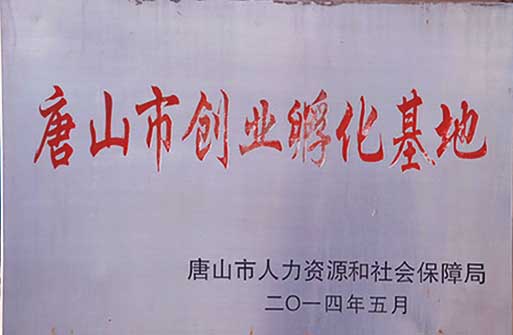 唐山市创业孵化基地
唐山市人力资源和社会保障局
二〇一四年五月